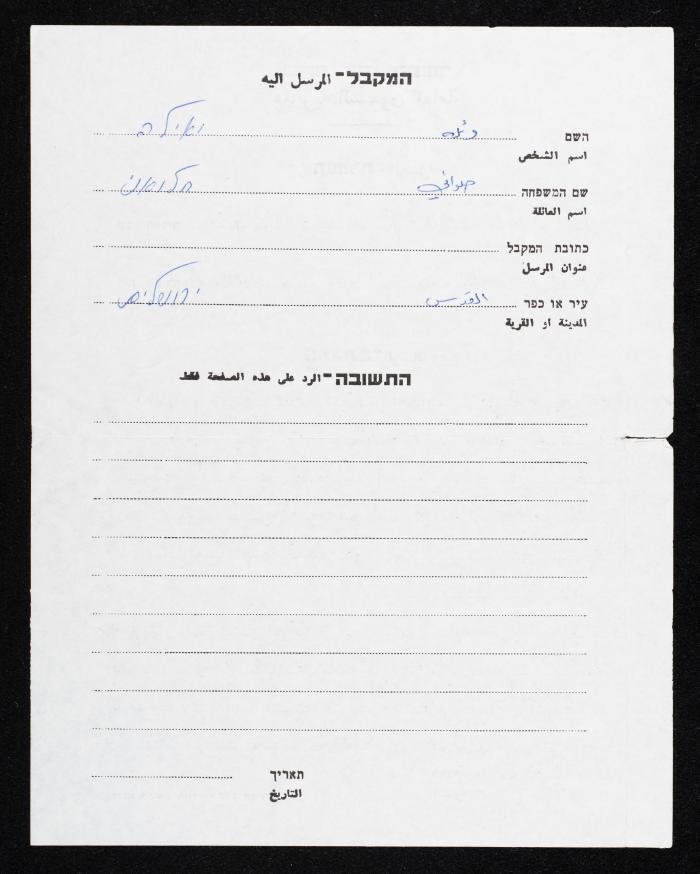 המקבל - المرسل اليه
השם ואילה
اسم الشخص
שם המשפחה حلواني חלואני
اسم العائلة
כתובת המקבל
عنوان المرسل
עיר או כפר القدس ירושלים
المدينة او القرية
התשובה - الرد على هذه الصفحة فقط
תאריך
التاريخ